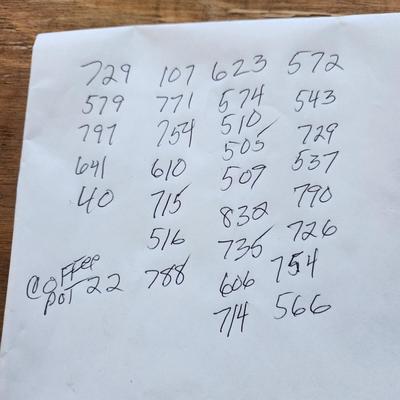 729 107 623 572
579 771 574 543
797 754 510 729
641 610 505 537
40 715 509 790
516 832 726
Coffee Pot 22 788 735 754
606 566
714